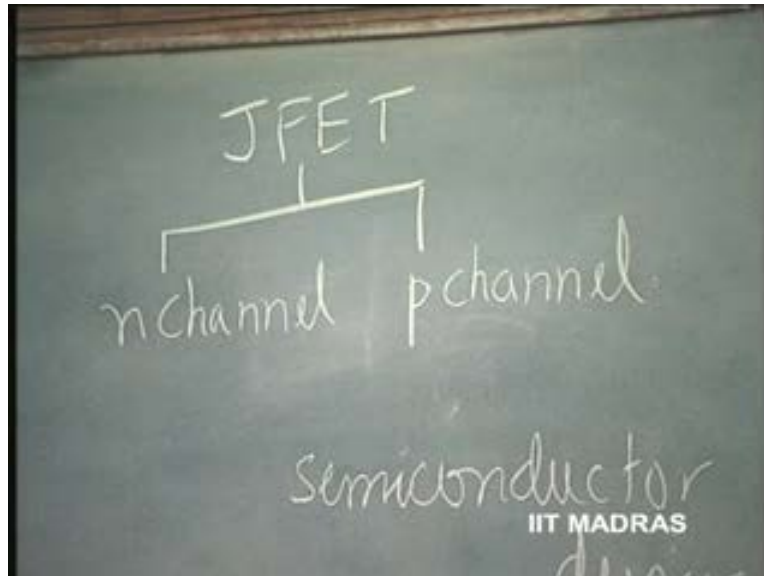 JFET
n channel p channel
semiconductor
IIT MADRAS